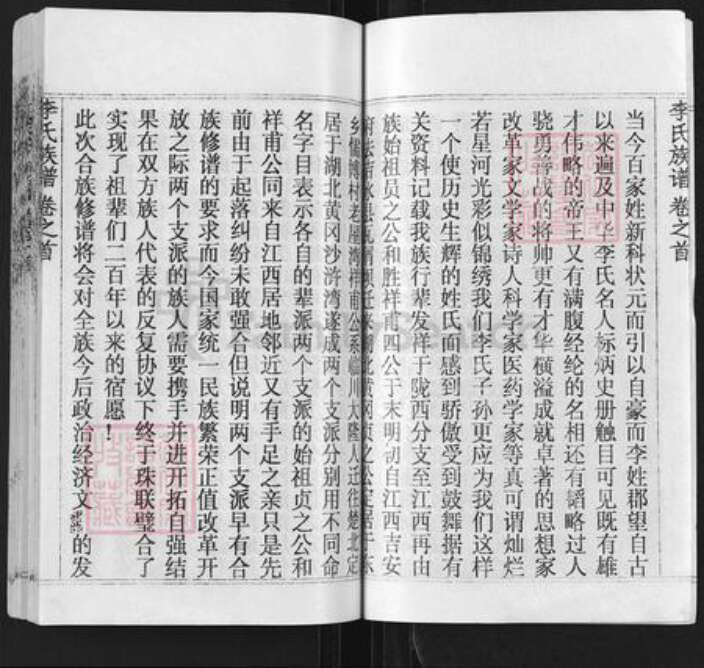 李氏族谱 卷之首
当今百家姓新科状元而引以自豪而李姓郡望自古
以来遍及中华李氏名人标炳史册触目可见既有雄
才伟略的帝王又有满腹经纶的名相还有韬略过人
骁勇善战的将帅更有才华横溢成就卓著的思想家
改革家文学家诗人科学家医药学家等真可谓灿烂
若星河光彩似锦绣我们李氏子孙更应为我们这样
一个使历史生辉的姓氏而感到骄傲受到鼓舞据有
关资料记载我族行辈发祥于陇西分支至江西再由
族始祖员之公和胜祥甫四公于末明初自江西吉安
老屋湾祥甫公系临川大隆人迁往楚北定
居于湖北黄冈沙浒湾遂成两个支派分别用不同命
名字目表示各自的辈派两个支派的始祖贞之公和
祥甫公同来自江西居地邻近又有手足之亲只是先
前由于起落纠纷未敢强合但说明两个支派早有合
族修谱的要求而今国家统一民族繁荣正值改革开
放之际两个支派的族人需要携手并进开拓自强结
果在双方族人代表的反复协议下终于珠联璧合了
实现了祖辈们二百年以来的宿愿！
此次合族修谱将会对全族今后政治经济文 的发
李氏族谱 卷之首